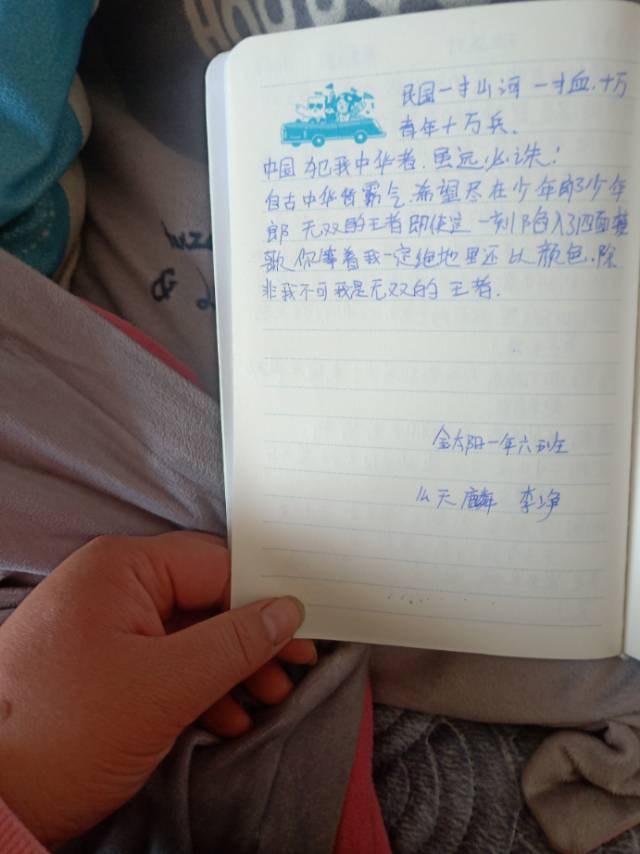 民国一寸山河一寸血.十万
青年十万兵.
中国 犯我中华者.虽远必诛!
自古中华皆霸气.希望尽在少年郎了少年
郎 无双的王者即使这一刻陷入了四面楚
歌你等着我一定绝地里还比颜色.除
非我不可我是无双的王者.
金太阳一年六班
么天麟 李净